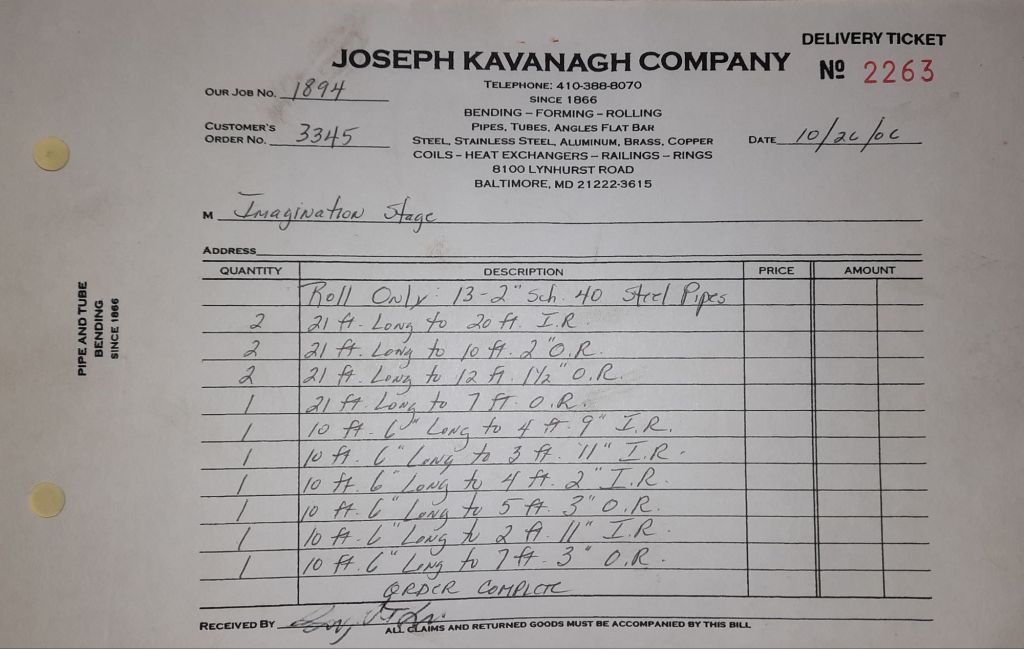 DELIVERY TICKET
JOSEPH KAVANAGH COMPANY
Nº 2263
OUR JOB NO. 1894
TELEPHONE: 410-388-8070
SINCE 1866
BENDING – FORMING – ROLLING
CUSTOMER'S ORDER NO. 3345
PIPES, TUBES, ANGLES FLAT BAR
STEEL, STAINLESS STEEL, ALUMINUM, BRASS, COPPER
DATE 10/26/06
COILS – HEAT EXCHANGERS – RAILINGS – RINGS
8100 LYNHURST ROAD
BALTIMORE, MD 21222-3615
M Imagination Stage
ADDRESS
QUANTITY DESCRIPTION PRICE AMOUNT
Roll Only: 13-2" Sch. 40 Steel Pipes
2 21 ft. Long to 20 ft. I.R.
2 21 ft. Long to 10 ft. 2" O.R.
2 21 ft. Long to 12 ft. 1½" O.R.
1 21 ft. Long to 7 ft. O.R.
1 10 ft. 6" Long to 4 ft. 9" I.R.
1 10 ft. 6" Long to 3 ft. 11" I.R.
1 10 ft. 6" Long to 4 ft. 2" I.R.
1 10 ft. 6" Long to 5 ft. 3" O.R.
1 10 ft. 6" Long to 2 ft. 11" I.R.
1 10 ft. 6" Long to 7 ft. 3" O.R.
ORDER COMPLETE
RECEIVED BY
ALL CLAIMS AND RETURNED GOODS MUST BE ACCOMPANIED BY THIS BILL
PIPE AND TUBE
BENDING
SINCE 1866